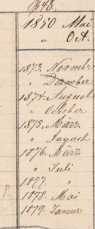 1848.
1850 Mai
" Oct.
1873. Novembr
" Dzember
1874. August
" October
1875. März
" August
1876. März
" Juli
1877.
1878. Mai
1879. Januar